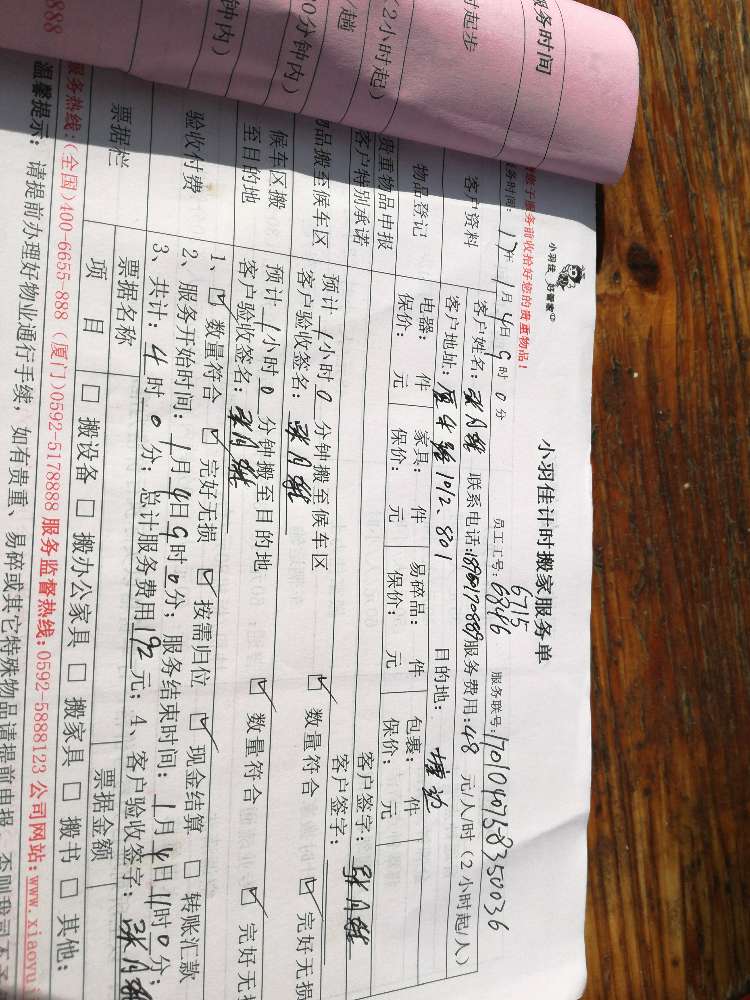 小羽佳 好管家
小羽佳计时搬家服务单
员工工号：6715
6846
服务联号：
于服务前收拾好您的贵重物品！
务时间：17年1月4日9时0分
客户资料
客户姓名：
联系电话：
服务费用：48 元/人/时（2小时起/人）
客户地址：
1012、801
目的地：
物品登记
电器： 件 家具： 件 易碎品： 件 包裹： 件
保价： 元 保价： 元 保价： 元 保价： 元
贵重物品申报
客户特别承诺
客户签字：
品搬至候车区
预计 1小时0 分钟搬至候车区
客户验收签名：
数量符合 完好无损
客户签字：
候车区搬
至目的地
预计 1小时0 分钟搬至目的地
客户验收签名：
数量符合 完好无损
验收付费
1、 数量符合 完好无损 按需归位 现金结算 转账汇款
2、服务开始时间：1月4日9时0分；服务结束时间：1月4日11时0分；
3、共计：4时0分；总计服务费用192元；4、客户验收签字：
票据栏
票据名称
票据金额
项目
搬设备 搬办公家具 搬家具 搬书 其他：
服务热线：(全国)400-6655-888 (厦门)0592-5178888 服务监督热线：0592-5888123 公司网站：www.xiaoyu
温馨提示：请提前办理好物业通行手续，如有贵重、易碎或其它特殊物品请提前申报，否则我司不予
服务时间
时起步
（2小时起）
/趟
0分钟内）
钟内）
888